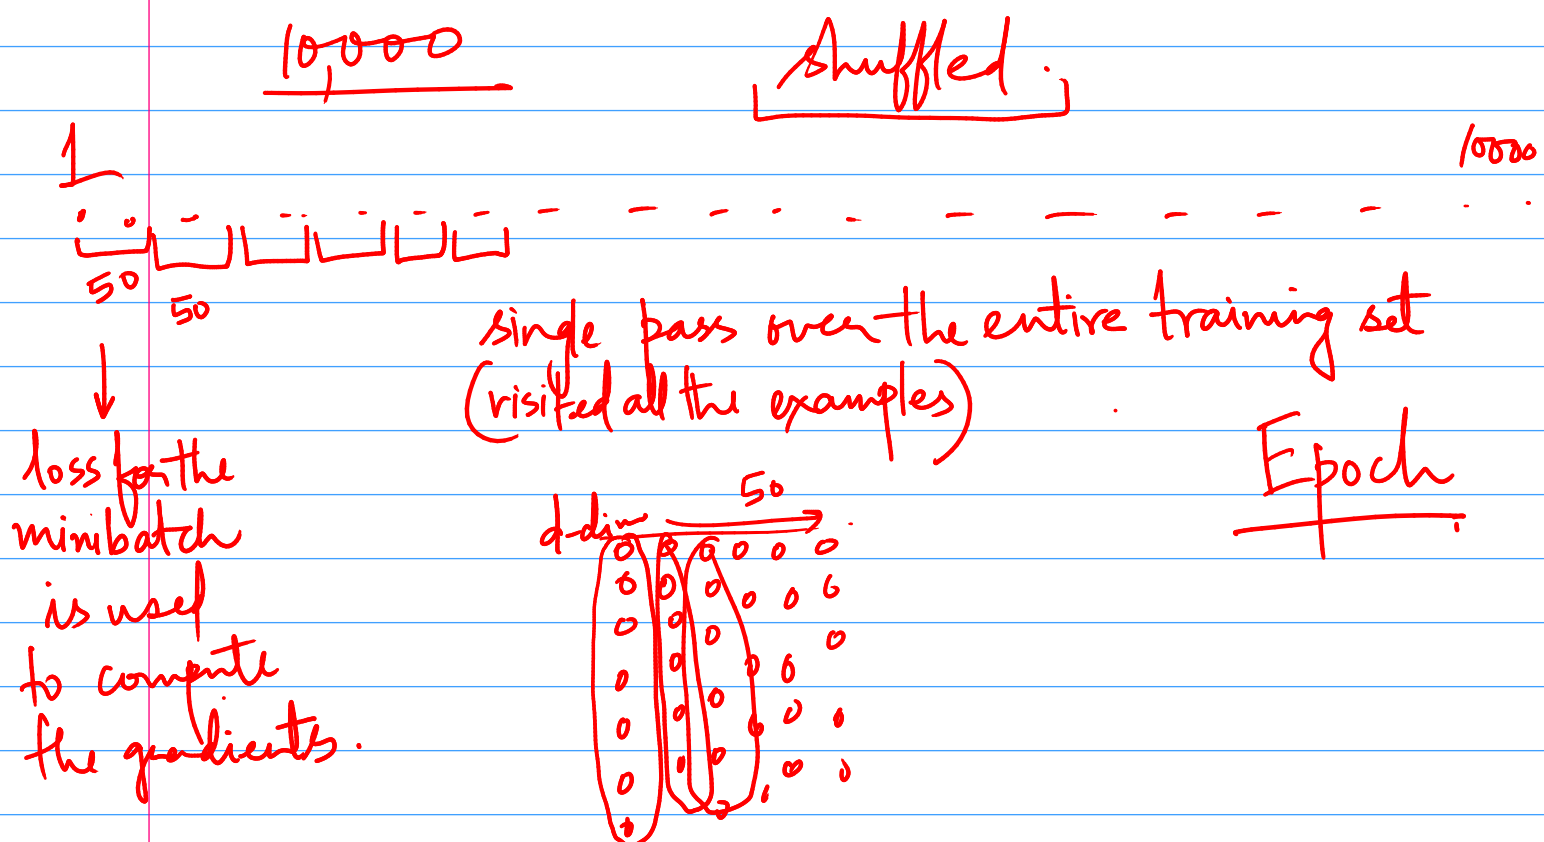 10,000
shuffled.
1
10000
50
50
single pass over the entire training set
(visited all the examples)
Epoch
loss for the
minibatch
is used
to compute
the gradients.
50
d-dim